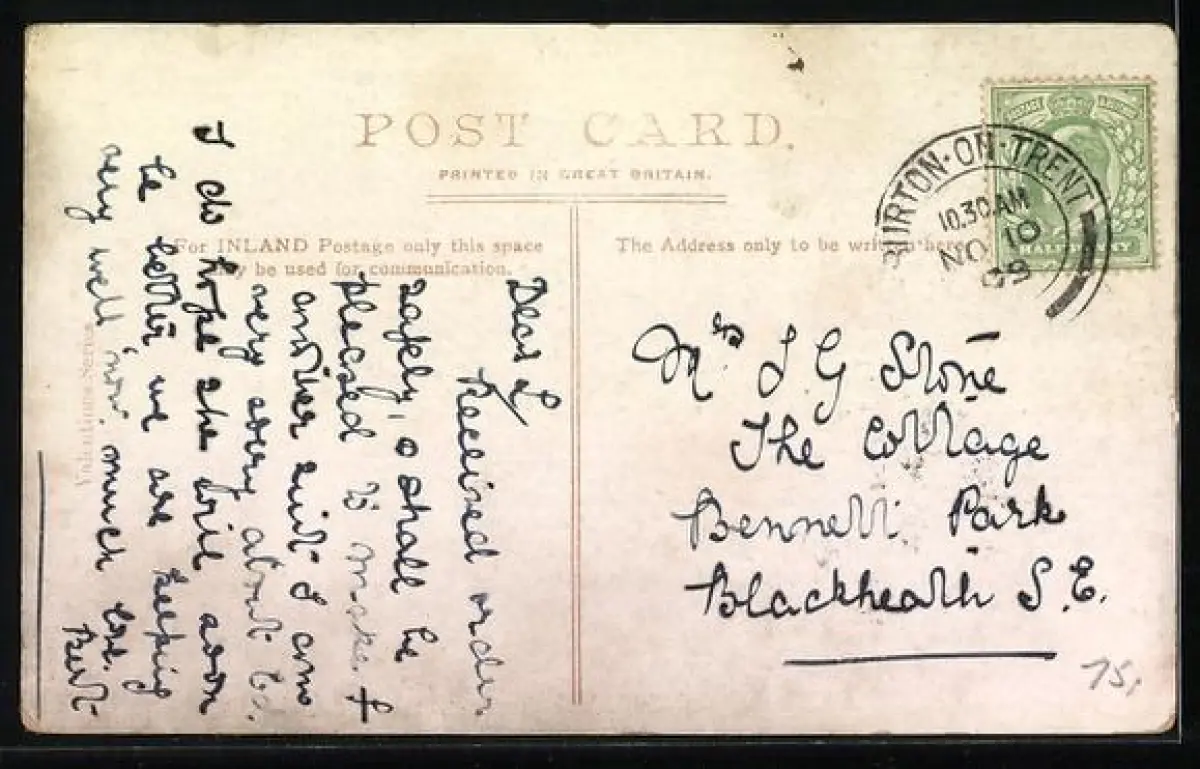 POST CARD.
PRINTED IN GREAT BRITAIN.
For INLAND Postage only this space
may be used for communication.
The Address only to be written here
BURTON·ON·TRENT
10.30AM
NO 10
09
HALFPENNY
Mrs J G Stone
The Cottage
Bennett Park
Blackheath S.E.
75,
Dear L
Received order
safely, & shall be
pleased to make
another suit I am
very sorry about
I do hope she will soon
be better we are keeping
very well now. much love.
Bert
Series